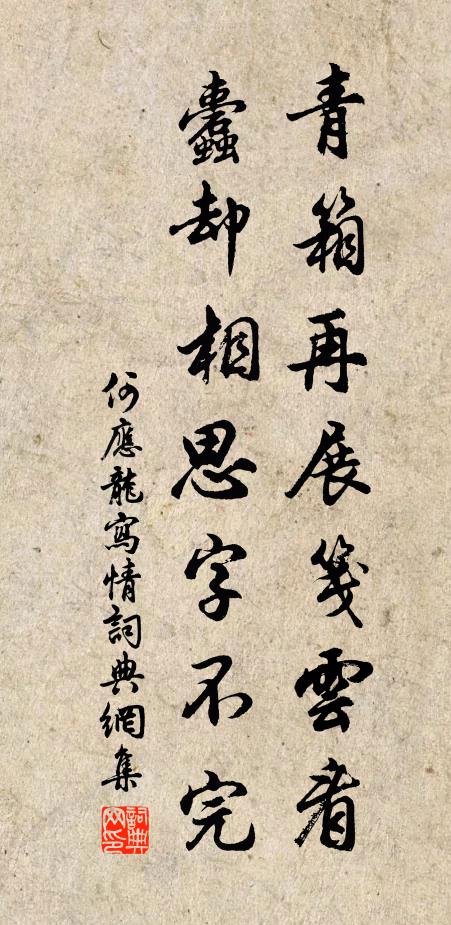 青箱再展箋雲看
蠹却相思字不完
何應龍寫情詞典網集
詞典網印